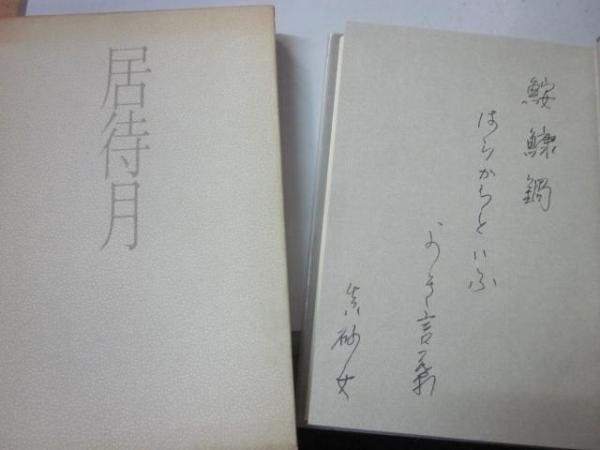 居待月
鮟鱇鍋
はらからといふ
よき言葉
真砂女